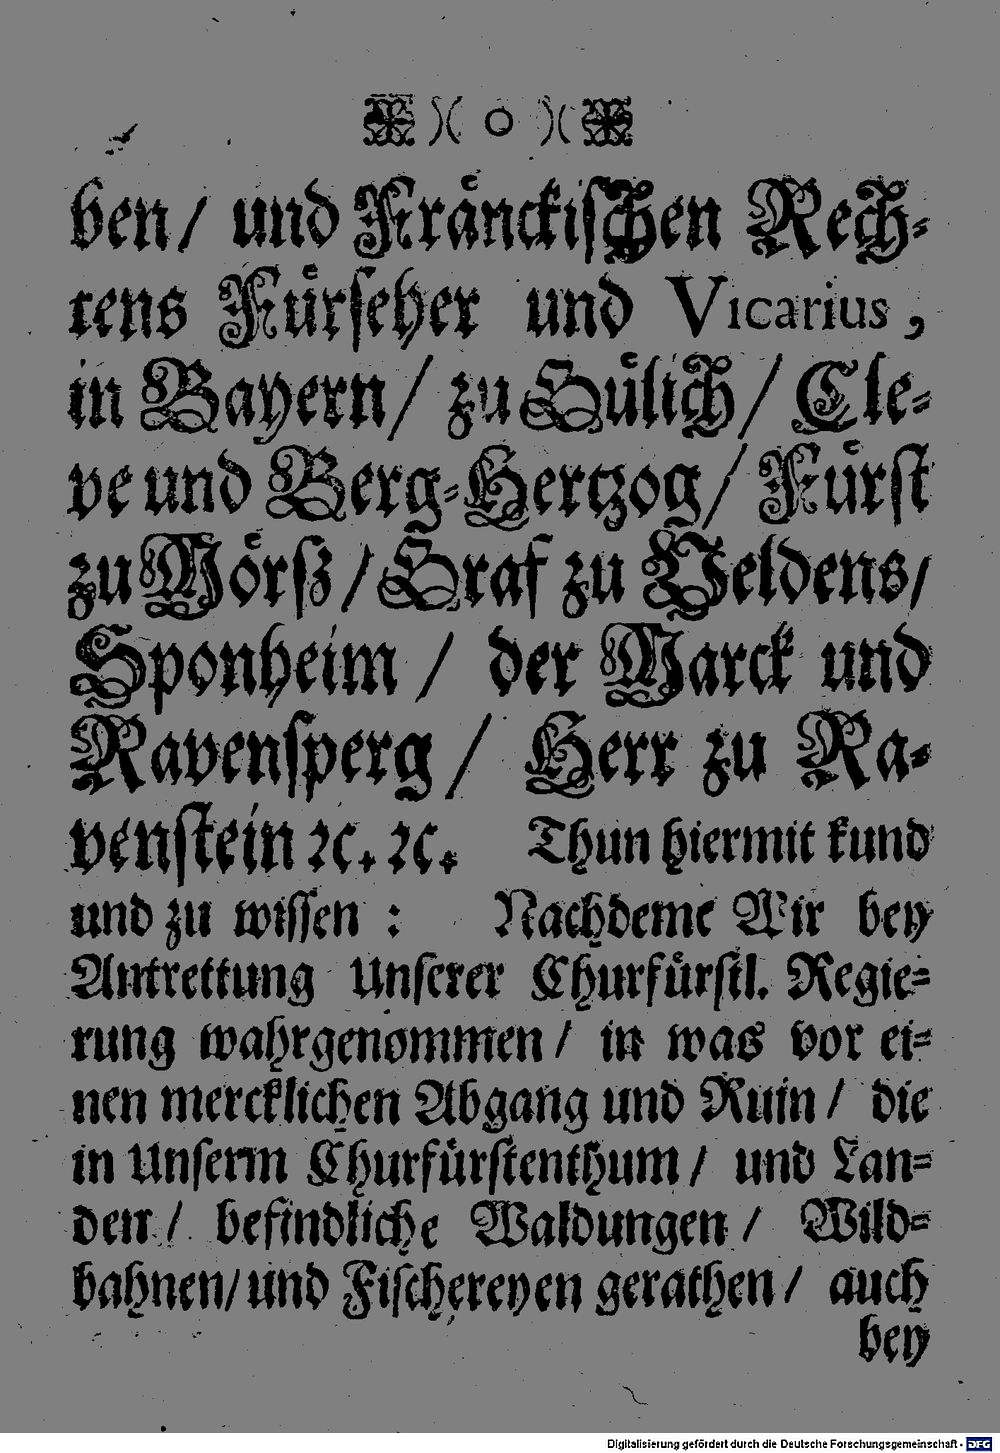 )( o )(
ben/ und Fränckischen Rech-
tens Fürseher und Vicarius,
in Bayern/ zu Gülich/ Cle-
ve und Berg-Hertzog/ Fürst
zu Mörß/ Graf zu Veldens/
Sponheim / der Marck und
Ravensperg / Herr zu Ra-
venstein ꝛc. ꝛc. Thun hiermit kund
und zu wissen : Nachdeme Wir bey
Antrettung Unserer Churfürstl. Regie-
rung wahrgenommen/ in was vor ei-
nen mercklichen Abgang und Ruin / die
in Unserm Churfürstenthum/ und Lan-
den/ befindliche Waldungen/ Wild-
bahnen/ und Fischereyen gerathen/ auch
bey
Digitalisierung gefördert durch die Deutsche Forschungsgemeinschaft - DFG